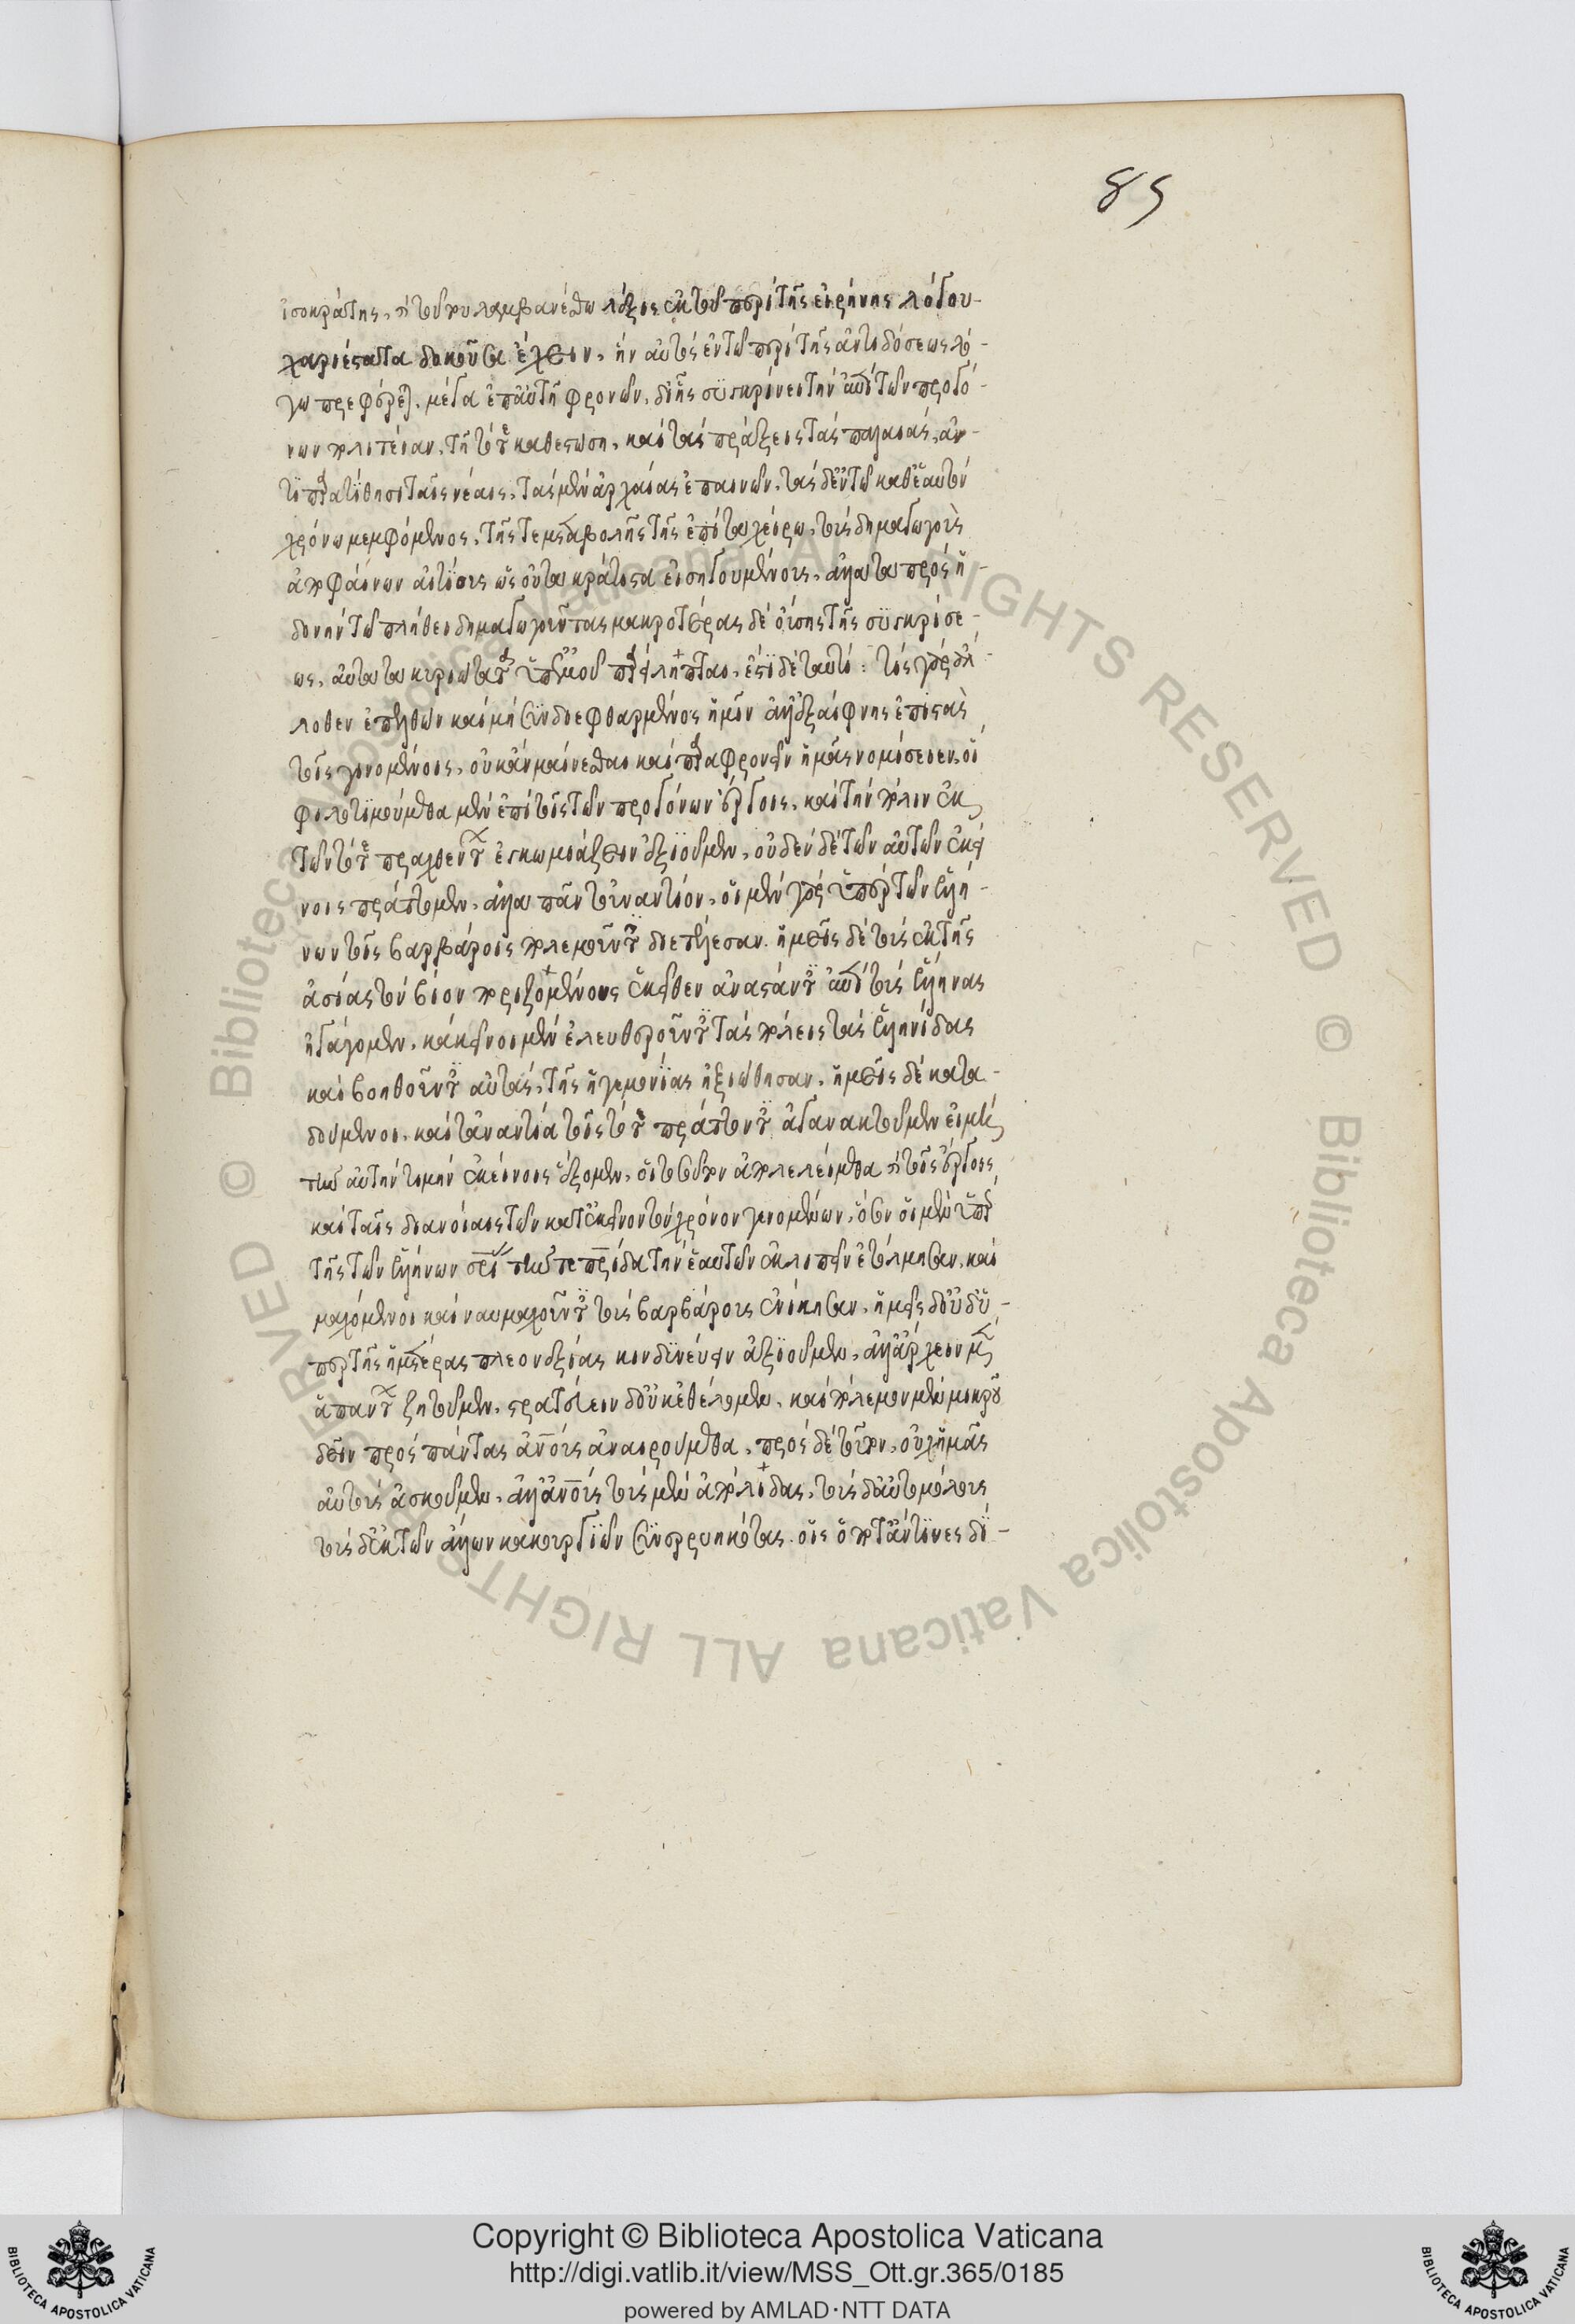 85
ἰσοκράτης, καὶ τούτου λαμβανέσθω λέξις ἐκ τοῦ περὶ τῆς εἰρήνης λόγου
χαριέστατα δοκοῦσα ἔχειν, ἣν αὐτὸς ἐν τῶ περὶ τῆς ἀντιδόσεως λό-
γω προεφέρετο, μέγα ἐπ' αὐτῆ φρονῶν, δι' ἧς συγκρίνει τὴν ἀπὸ τῶν προγό-
νων πολιτείαν, τῆ τότε καθεστώση, καὶ τὰς πράξεις τὰς παλαιὰς, ἀν-
τιπαρατίθησι ταῖς νέαις, τὰς μὲν ἀρχαίας ἐπαινῶν, τὰς δ' ἐν τῶ καθ' ἑαυτὸν
χρόνω μεμφόμενος, τῆς τε μεταβολῆς τῆς ἐπὶ τὰ χείρω, τοὺς δημαγωγοὺς
ἀποφαίνων αἰτίους ὡς οὐ τὰ κράτιστα εἰσηγουμένους, ἀλλὰ τὰ πρὸς ἡ-
δονὴν τῶ πλήθει δημαγωγοῦντας μακροτέρας δὲ οὔσης τῆς συγκρίσε-
ως, αὐτὰ τὰ κυριώτατα ὑπ' ἐμοῦ παρείληπται, ἔστι δὲ ταυτί: τίς γὰρ ἄλ-
λοθεν ἐπελθὼν καὶ μὴ συνδιεφθαρμένος ἡμῖν ἀλλ' ἐξαίφνης ἐπιστὰς
τοῖς γινομένοις, οὐκ ἂν μαίνεσθαι καὶ παραφρονεῖν ἡμᾶς νομίσειεν, οἳ
φιλοτιμούμεθα μὲν ἐπὶ τοῖς τῶν προγόνων ἔργοις, καὶ τὴν πόλιν ἐκ
τῶν τότε πραχθέντων ἐγκωμιάζειν ἀξιοῦμεν, οὐδὲν δὲ τῶν αὐτῶν ἐκεί-
νοις πράττομεν, ἀλλὰ πᾶν τοὐναντίον, οἱ μὲν γὰρ ὑπὲρ τῶν ἑλλή-
νων τοῖς βαρβάροις πολεμοῦντες διετέλεσαν. ἡμεῖς δὲ τοὺς ἐκ τῆς
ἀσίας τὸν βίον ποριζομένους ἐκεῖθεν ἀναστάντες ἐπὶ τοὺς ἕλληνας
ἠγάγομεν, κἀκεῖνοι μὲν ἐλευθεροῦντες τὰς πόλεις τὰς ἑλληνίδας
καὶ βοηθοῦντες αὐταῖς, τῆς ἡγεμονίας ἠξιώθησαν, ἡμεῖς δὲ κατα-
δουλούμενοι, καὶ τἀναντία τοῖς τότε πράττοντες ἀγανακτοῦμεν εἰ μὴ
τὴν αὐτὴν τιμὴν ἐκείνοις ἕξομεν, οἳ τοσοῦτον ἀπολελείμμεθα καὶ τοῖς ἔργοις
καὶ ταῖς διανοίαις τῶν κατ' ἐκεῖνον τὸν χρόνον γενομένων, ὅσον οἱ μὲν ὑπὲρ
τῆς τῶν ἑλλήνων σωτηρίας τήν τε πατρίδα τὴν ἑαυτῶν ἐκλιπεῖν ἐτόλμησαν, καὶ
μαχόμενοι καὶ ναυμαχοῦντες τοὺς βαρβάρους ἐνίκησαν, ἡμεῖς δ' οὐδ' ὑ-
πὲρ τῆς ἡμετέρας πλεονεξίας κινδυνεύειν ἀξιοῦμεν, ἀλλ' ἄρχειν μὲν
ἁπάντων ζητοῦμεν, στρατεύειν δ' οὐκ ἐθέλομεν, καὶ πόλεμον μὲν μικροῦ
δεῖν πρὸς πάντας ἀνθρώπους ἀναιρούμεθα, πρὸς δὲ τοῦτον, οὐχ ἡμᾶς
αὐτοὺς ἀσκοῦμεν, ἀλλ' ἀνθρώπους τοὺς μὲν ἀπόλιδας, τοὺς δ' αὐτομόλους
τοὺς δ' ἐκ τῶν ἄλλων κακουργιῶν συνερρυηκότας. οἷς ὁπόταν τινες δι-
Copyright © Biblioteca Apostolica Vaticana
http://digi.vatlib.it/view/MSS_Ott.gr.365/0185
powered by AMLAD·NTT DATA